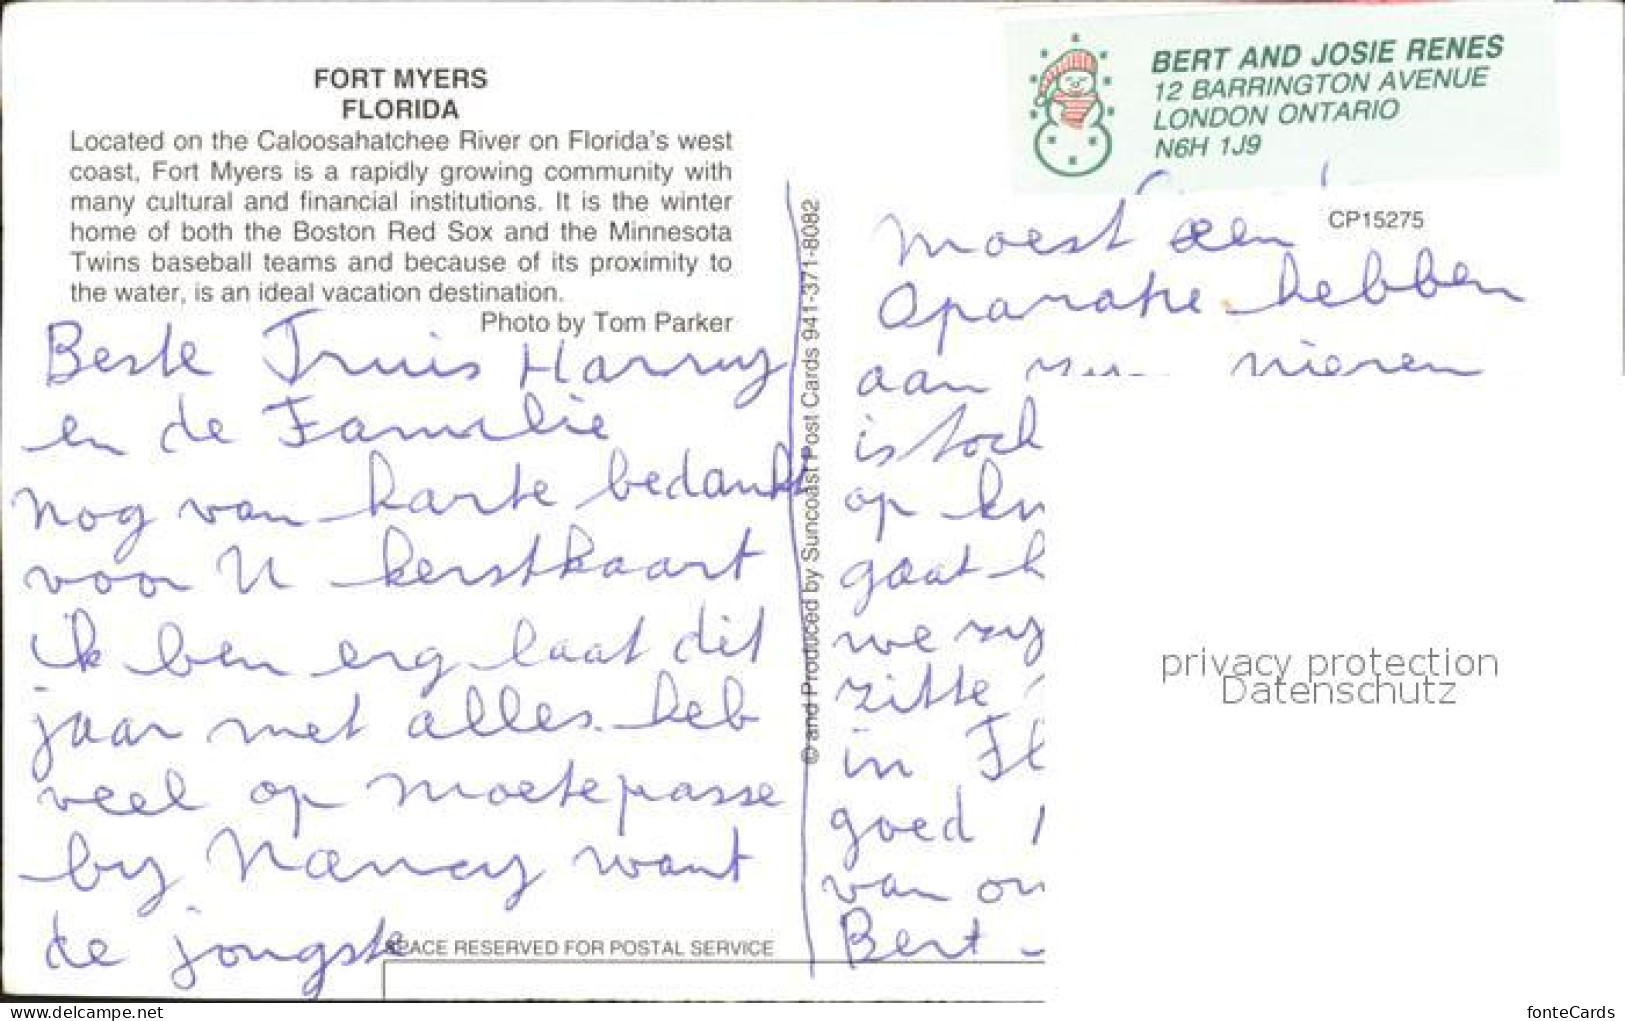 FORT MYERS
FLORIDA
Located on the Caloosahatchee River on Florida's west
coast, Fort Myers is a rapidly growing community with
many cultural and financial institutions. It is the winter
home of both the Boston Red Sox and the Minnesota
Twins baseball teams and because of its proximity to
the water, is an ideal vacation destination.
Photo by Tom Parker
Beste Truus Harry
en de Familie
nog van harte bedankt
voor U kerstkaart
ik ben erg laat dit
jaar met alles. heb
veel op moetepasse
by Nancy want
de jongste
SPACE RESERVED FOR POSTAL SERVICE
© and Produced by Suncoast Post Cards 941-371-8082
BERT AND JOSIE RENES
12 BARRINGTON AVENUE
LONDON ONTARIO
N6H 1J9
CP15275
moest een
Oparatie hebben
aan nieren
is toch
op
gaat
we zy
zitte
in Fl
goed
van on
Bert -
privacy protection
Datenschutz
www.delcampe.net
fonteCards